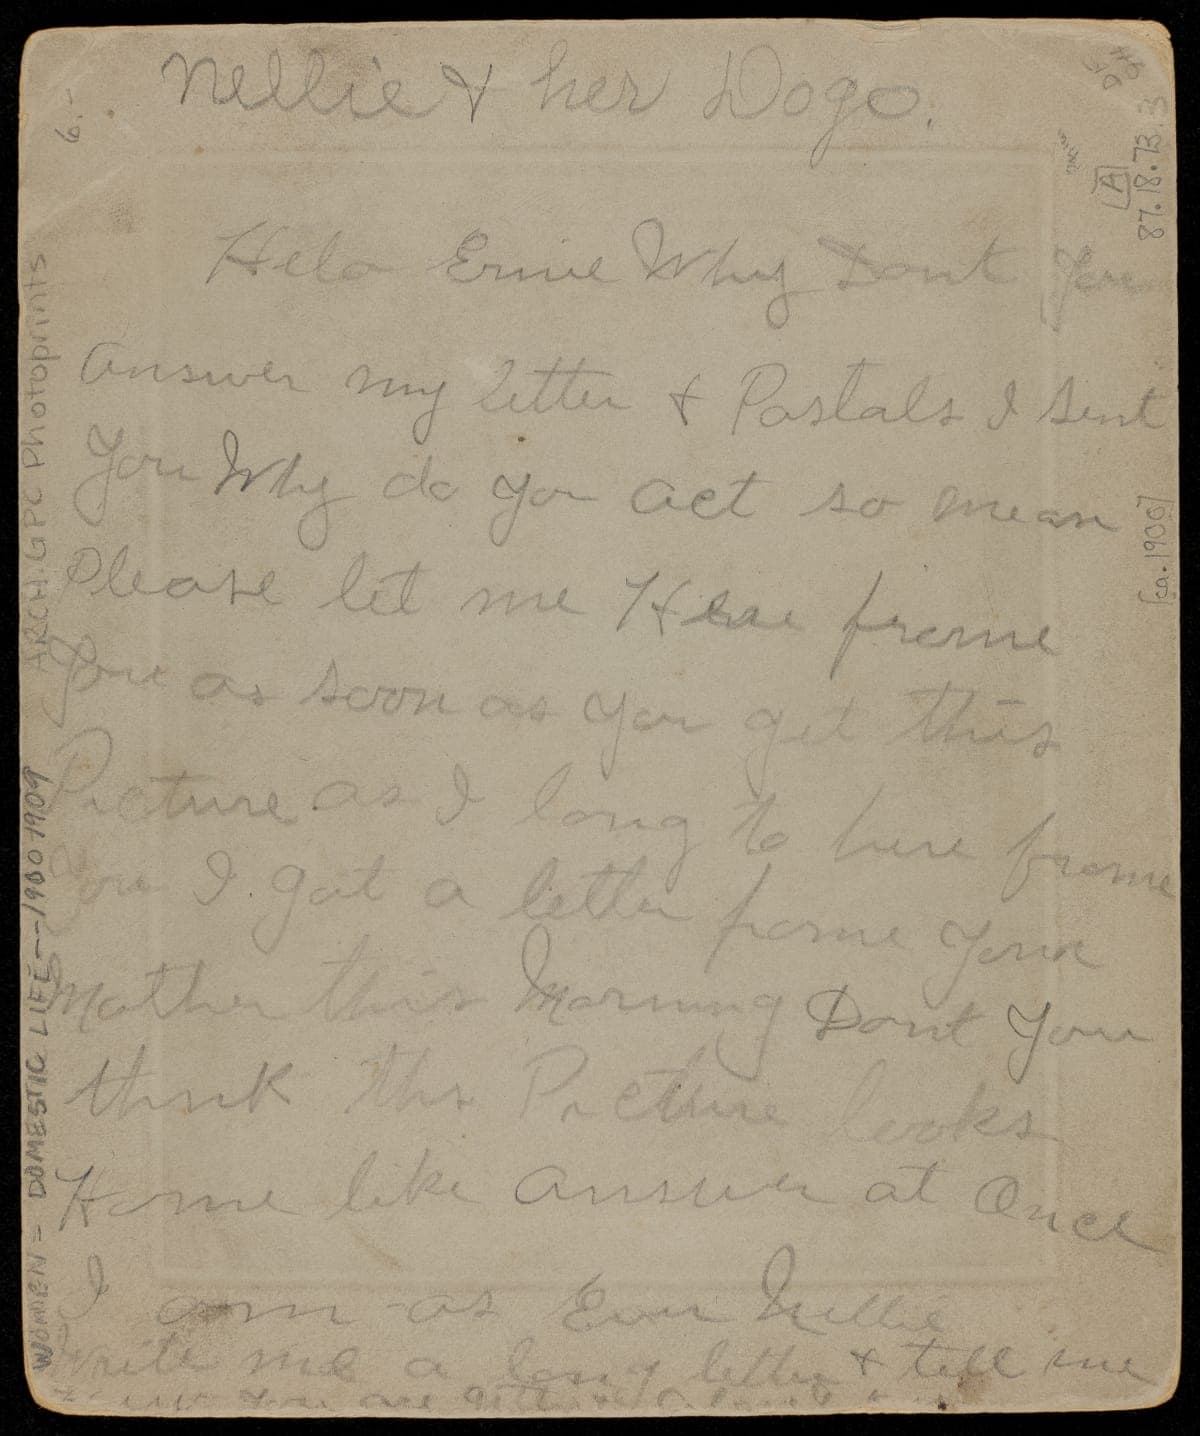 Nellie & her Dogo.
Helo Ernie Why Dont You
answer my letter & Postals I sent
You Why do you act so mean
Please let me Hear frome
You as soon as you get this
Picture as I long to here frome
You I got a letter frome your
Mother this Morning Dont You
think this Picture looks
Home like answer at Once
I am as Ever Nellie
write me a long letter & tell me
you are
6.-
ARCH. GPC Photoprints
WOMEN = DOMESTIC LIFE--1900-1909
[A]
87.18.73.3
[ca. 1900]